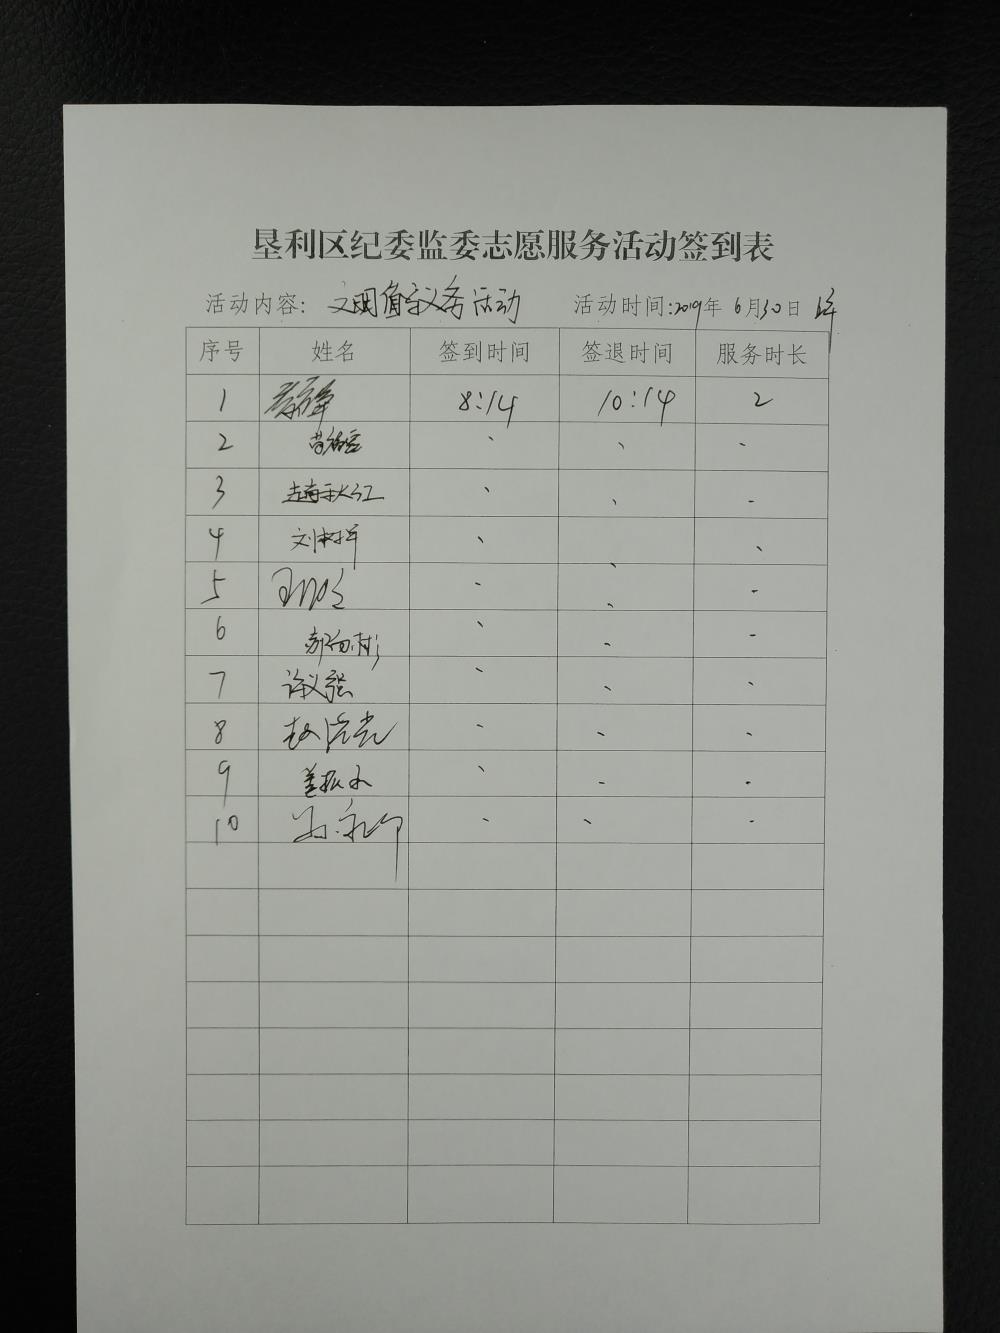 垦利区纪委监委志愿服务活动签到表
活动内容: 文明值守义务活动 活动时间:2019年6月30日
序号 姓名 签到时间 签退时间 服务时长
1 8:14 10:14 2
2 、 、 -
3 赵秋江 、 、 -
4 刘树祥 、 、 、
5 - 、 -
6 、 - -
7 许义强 、 、 、
8 赵浩光 - - -
9 盖振永 、 - -
10 - 、 -